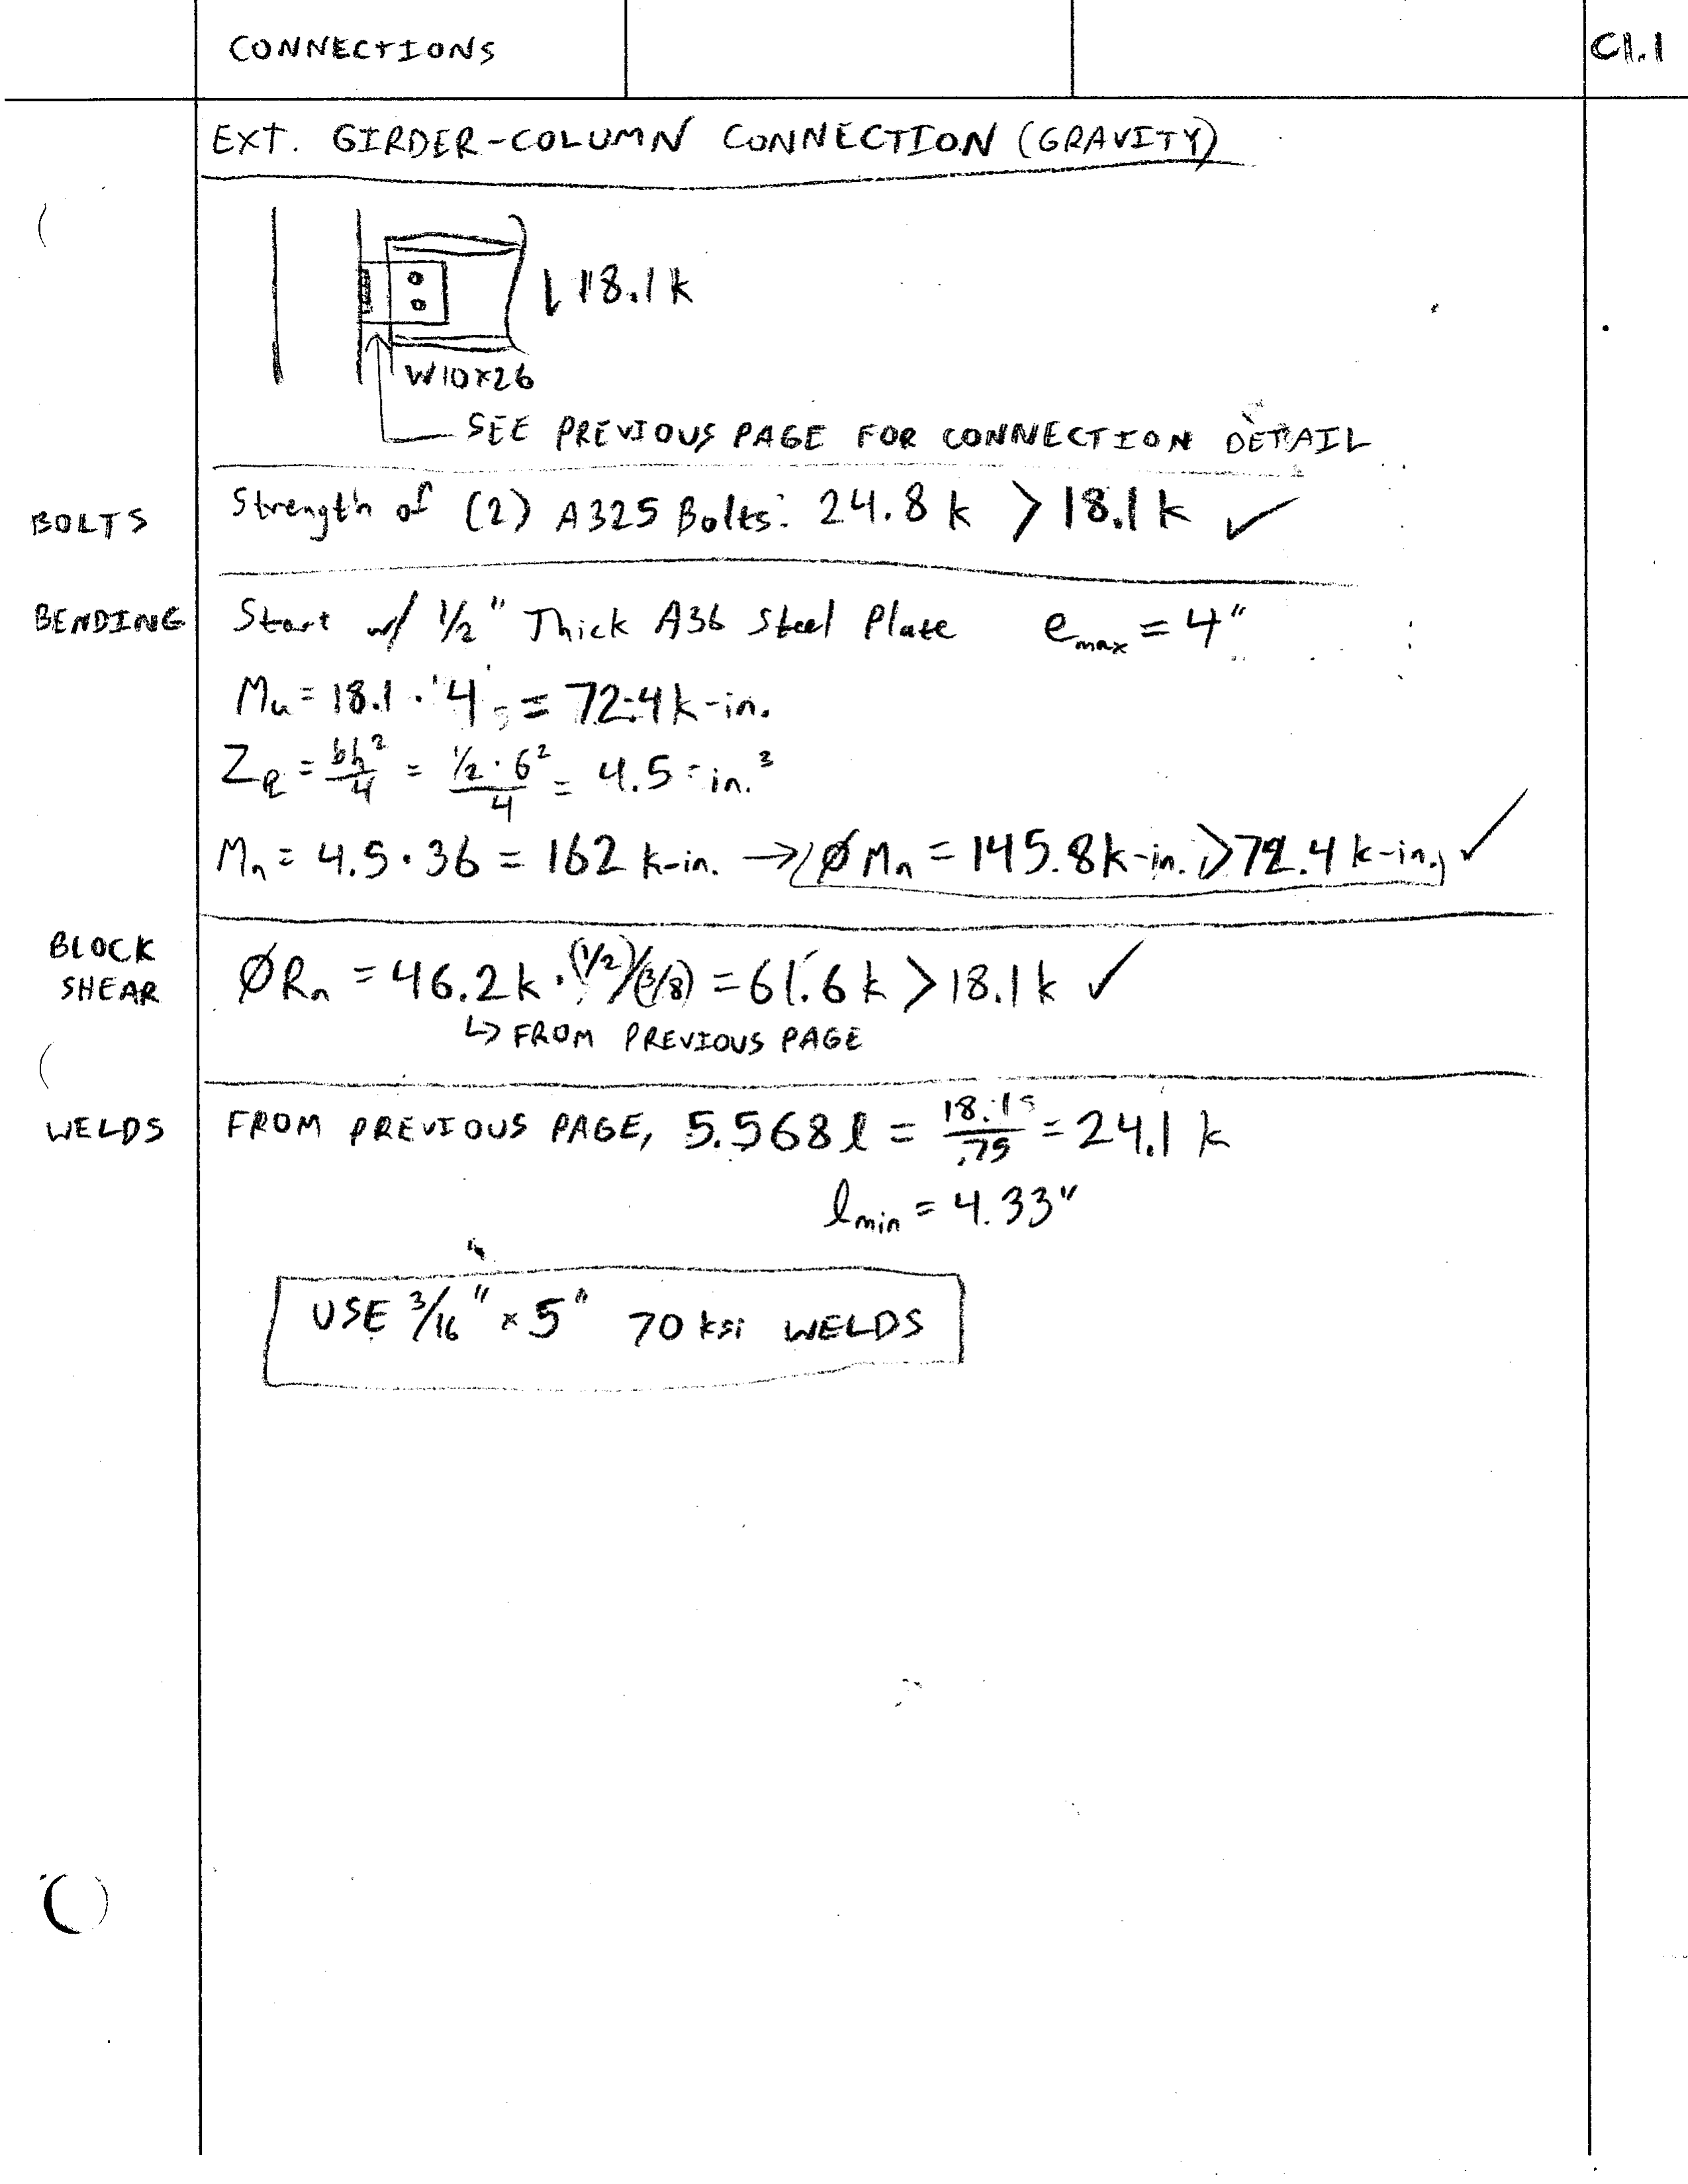 CONNECTIONS
C1.1
EXT. GIRDER-COLUMN CONNECTION (GRAVITY)
↓ 18.1 k
W10×26
SEE PREVIOUS PAGE FOR CONNECTION DETAIL
BOLTS
Strength of (2) A325 Bolts: 24.8 k > 18.1 k ✓
BENDING
Start w/ 1/2" Thick A36 Steel Plate e_max = 4"
M_u = 18.1 · 4 = 72.4 k-in.
Z_R = bh²/4 = 1/2 · 6²/4 = 4.5 in.³
M_n = 4.5 · 36 = 162 k-in. → ØM_n = 145.8 k-in. > 72.4 k-in. ✓
BLOCK SHEAR
ØR_n = 46.2 k · (1/2)/(3/8) = 61.6 k > 18.1 k ✓
↳ FROM PREVIOUS PAGE
WELDS
FROM PREVIOUS PAGE, 5.568 l = 18.1/.75 = 24.1 k
l_min = 4.33"
USE 3/16" × 5" 70 ksi WELDS